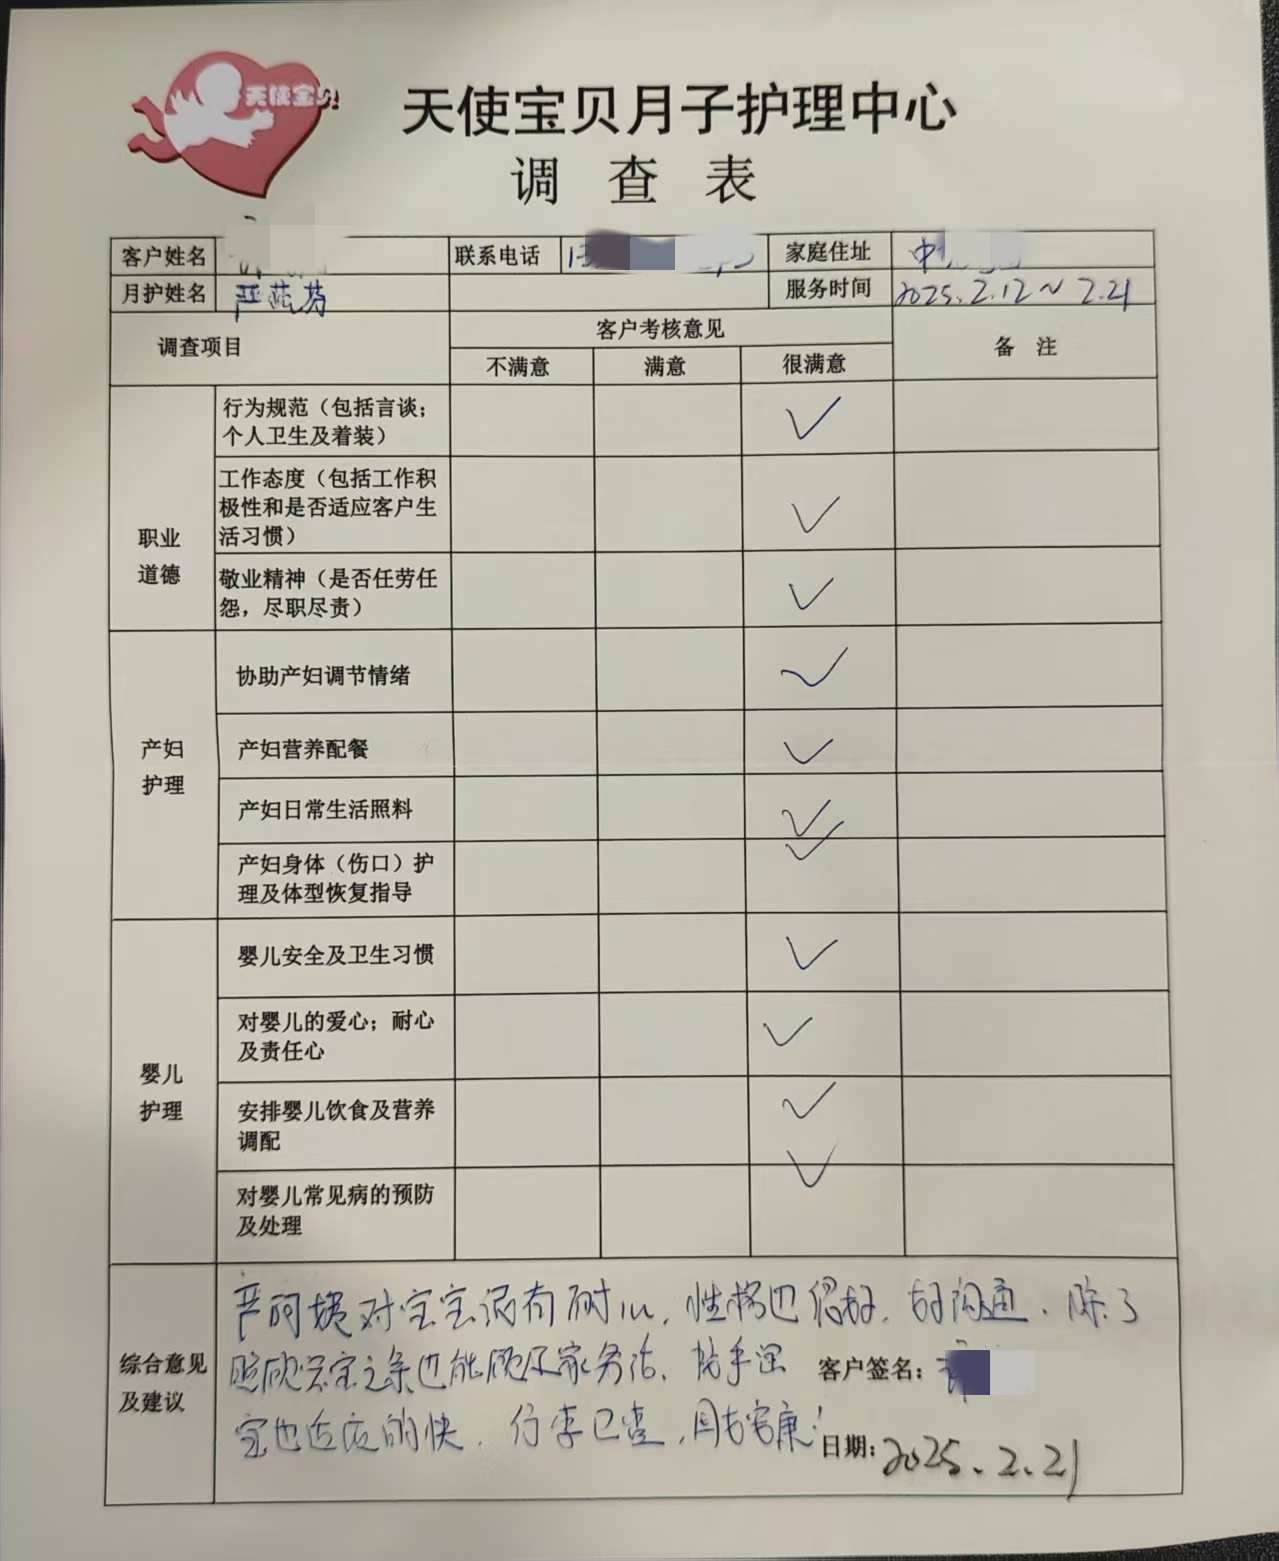 天使宝贝
天使宝贝月子护理中心
调查表
客户姓名 联系电话 家庭住址 中
月护姓名 严 芬 服务时间 2025.2.12～2.21
调查项目 客户考核意见 备注
不满意 满意 很满意
职业道德
行为规范（包括言谈；
个人卫生及着装）
工作态度（包括工作积
极性和是否适应客户生
活习惯）
敬业精神（是否任劳任
怨，尽职尽责）
产妇护理
协助产妇调节情绪
产妇营养配餐
产妇日常生活照料
产妇身体（伤口）护
理及体型恢复指导
婴儿护理
婴儿安全及卫生习惯
对婴儿的爱心；耐心
及责任心
安排婴儿饮食及营养
调配
对婴儿常见病的预防
及处理
综合意见及建议
严阿姨对宝宝很有耐心，性格也很好，好沟通，除了
照顾宝宝之余也能顾及家务活，
宝也适应的快，行李已查，
客户签名：
日期：2025.2.21